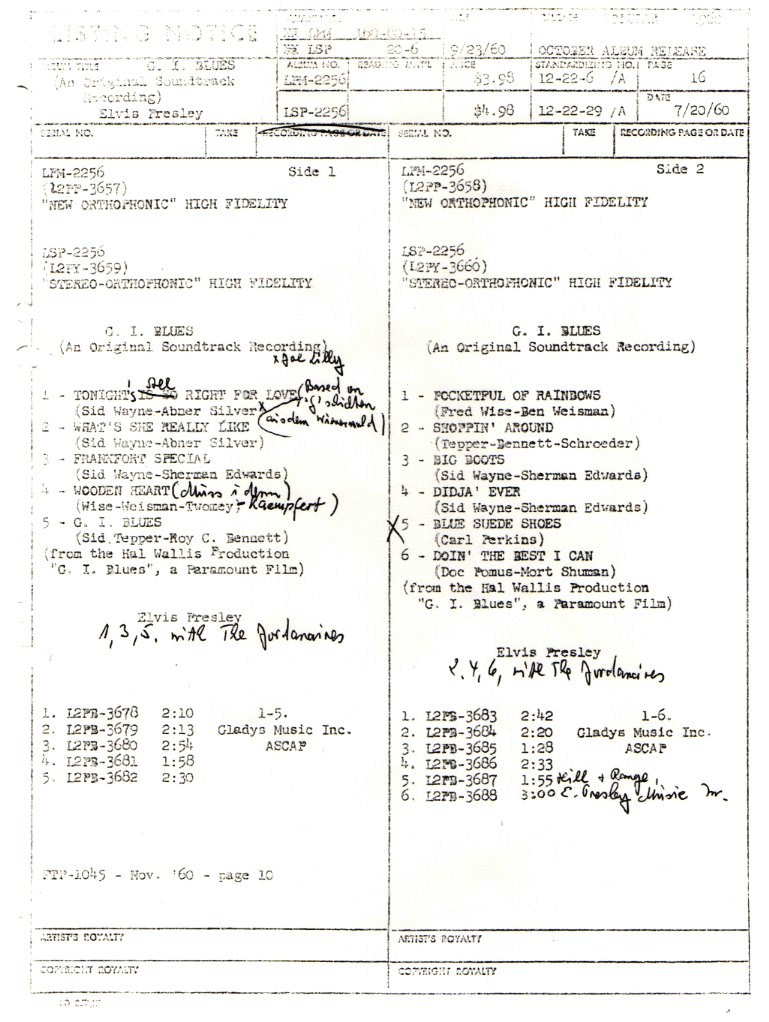 LISTING NOTICE
9/23/60
OCTOBER ALBUM RELEASE
ALBUM NO.
PRICE
STANDARDIZING NO.
PAGE
G. I. BLUES
(An Original Soundtrack
Recording)
Elvis Presley
LPM-2256
$3.98
12-22-6 /A
16
LSP-2256
$4.98
12-22-29 /A
DATE
7/20/60
SERIAL NO.
TAKE
RECORDING PAGE OR DATE
SERIAL NO.
TAKE
RECORDING PAGE OR DATE
LPM-2256 Side 1
(L2PP-3657)
"NEW ORTHOPHONIC" HIGH FIDELITY
LSP-2256
(L2PY-3659)
"STEREO-ORTHOPHONIC" HIGH FIDELITY
G. I. BLUES
(An Original Soundtrack Recording)
x Joe Lilly
All
1 - TONIGHT'S IS SO RIGHT FOR LOVE (Based on
(Sid Wayne-Abner Silver x
2 - WHAT'S SHE REALLY LIKE
(Sid Wayne-Abner Silver)
3 - FRANKFORT SPECIAL
(Sid Wayne-Sherman Edwards)
4 - WOODEN HEART (Muss i denn)
(Wise-Weisman-Twomey - Kaempfert)
5 - G. I. BLUES
(Sid Tepper-Roy C. Bennett)
(from the Hal Wallis Production
"G. I. Blues", a Paramount Film)
Elvis Presley
1, 3, 5. with The Jordanaires
1. L2PB-3678 2:10 1-5.
2. L2PB-3679 2:13 Gladys Music Inc.
3. L2PB-3680 2:54 ASCAP
4. L2PB-3681 1:58
5. L2PB-3682 2:30
FTP-1045 - Nov. '60 - page 10
ARTIST'S ROYALTY
COPYRIGHT ROYALTY
LPM-2256 Side 2
(L2PP-3658)
"NEW ORTHOPHONIC" HIGH FIDELITY
LSP-2256
(L2PY-3660)
"STEREO-ORTHOPHONIC" HIGH FIDELITY
G. I. BLUES
(An Original Soundtrack Recording)
1 - POCKETFUL OF RAINBOWS
(Fred Wise-Ben Weisman)
2 - SHOPPIN' AROUND
(Tepper-Bennett-Schroeder)
3 - BIG BOOTS
(Sid Wayne-Sherman Edwards)
4 - DIDJA' EVER
(Sid Wayne-Sherman Edwards)
X 5 - BLUE SUEDE SHOES
(Carl Perkins)
6 - DOIN' THE BEST I CAN
(Doc Pomus-Mort Shuman)
(from the Hal Wallis Production
"G. I. Blues", a Paramount Film)
Elvis Presley
2. 4, 6, with The Jordanaires
1. L2PB-3683 2:42 1-6.
2. L2PB-3684 2:20 Gladys Music Inc.
3. L2PB-3685 1:28 ASCAP
4. L2PB-3686 2:33
5. L2PB-3687 1:55 Hill + Range,
6. L2PB-3688 3:00 E. Presley Music Inc.
ARTIST'S ROYALTY
COPYRIGHT ROYALTY